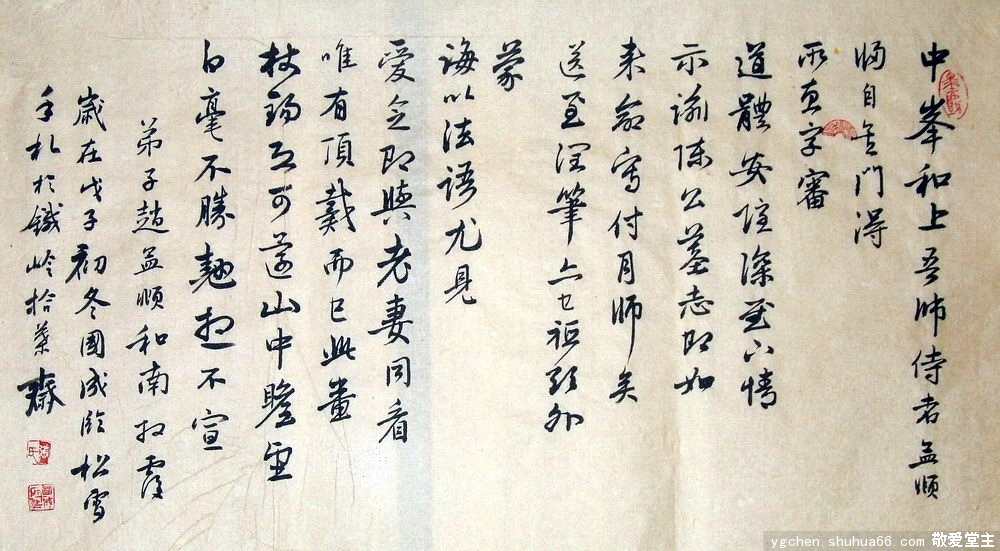 中峯和上吾師侍者孟頫
歸自吳門得
所惠字審
道體安隱深慰下情
示諭陳公墓志即如
來命寫付月師矣
送至潤筆亦已祗領外
蒙
誨以法語尤見
愛念即與老妻同看
唯有頂戴而已此番
杖錫又可還山中瞻望
白毫不勝翹想不宣
弟子趙孟頫和南拜覆
歲在戊子初冬國成臨松雪
手札於鐵嶺拾葉齋
ygchen.shuhua66.com 敬爱堂主